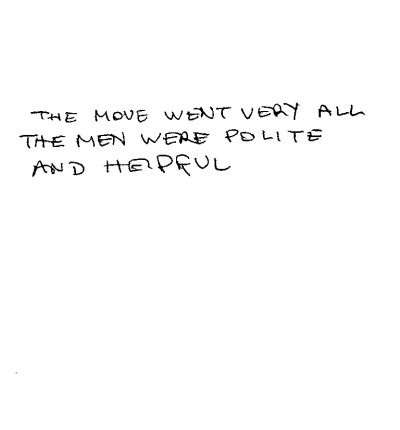 THE MOVE WENT VERY ALL
THE MEN WERE POLITE
AND HELPFUL